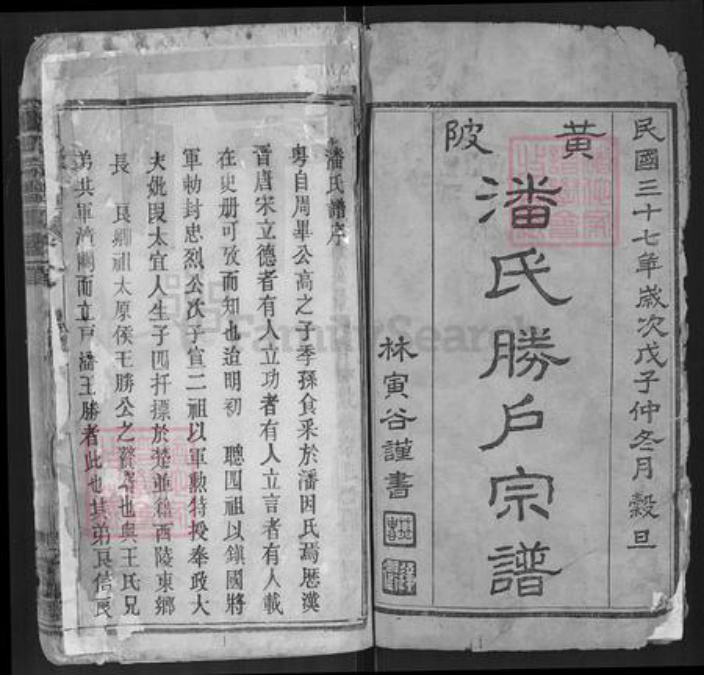 民國三十七年歲次戊子仲冬月穀旦
黃陂
潘氏勝户宗譜
林寅谷謹書
潘氏譜序
粵自周畢公高之子季孫食采於潘因氏焉歷漢
晋唐宋立德者有人立功者有人立言者有人載
在史册可攷而知也迨明初 聰四祖以鎮國將
軍勅封忠烈公次子宣二祖以軍勲特授奉政大
夫妣閔太宜人生子四扦摽於楚並籍西陵東鄉
長 良卿祖太原侯王勝公之也也與王氏兄
弟共軍而立戸潘王勝者此也其弟良信良
FamilySearch